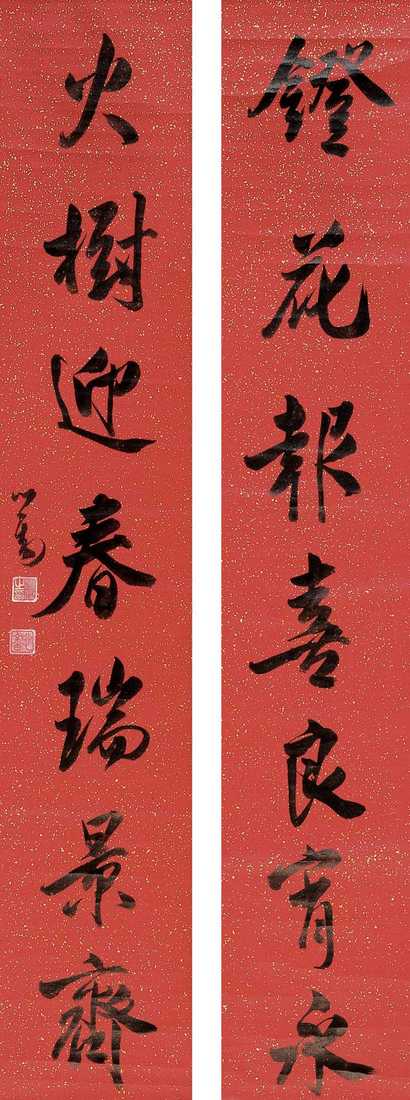 鐙花報喜良宵永
火樹迎春瑞景齊
心畬